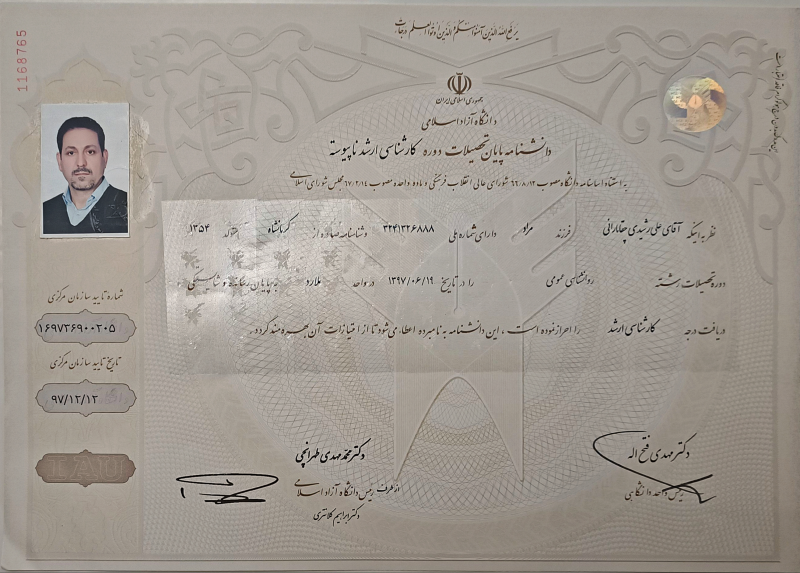 یرفع الله الذین آمنوا منکم والذین اوتوا العلم درجات
1168765
جمهوری اسلامی ایران
دانشگاه آزاد اسلامی
دانشنامه پایان تحصیلات دوره کارشناسی ارشد ناپیوسته
به استناد اساسنامه دانشگاه مصوب ۶۶/۸/۱۲ شورای عالی انقلاب فرهنگی و ماده واحده مصوب ۶۷/۲/۱۴ مجلس شورای اسلامی
نظر به اینکه آقای علی رشیدی چقابرانی فرزند مراد دارای شماره ملی ۳۲۴۱۳۲۶۸۸۸ و شناسنامه صادره از کرمانشاه متولد ۱۳۵۴
دوره تحصیلات رشته روانشناسی عمومی را در تاریخ ۱۳۹۷/۰۶/۱۹ در واحد ملارد به پایان رسانده و شایستگی
دریافت درجه کارشناسی ارشد را احراز نموده است ، این دانشنامه به نامبرده اعطاء می شود تا از امتیازات آن بهره مند گردد.
شماره تایید سازمان مرکزی
۱۶۹۷۳۶۹۰۰۲۰۵
تاریخ تایید سازمان مرکزی
۹۷/۱۲/۱۲
IAU
دکتر مهدی فتح اله
رئیس واحد دانشگاهی
دکتر محمد مهدی طهرانچی
از طرف رئیس دانشگاه آزاد اسلامی
دکتر ابراهیم کلانتری